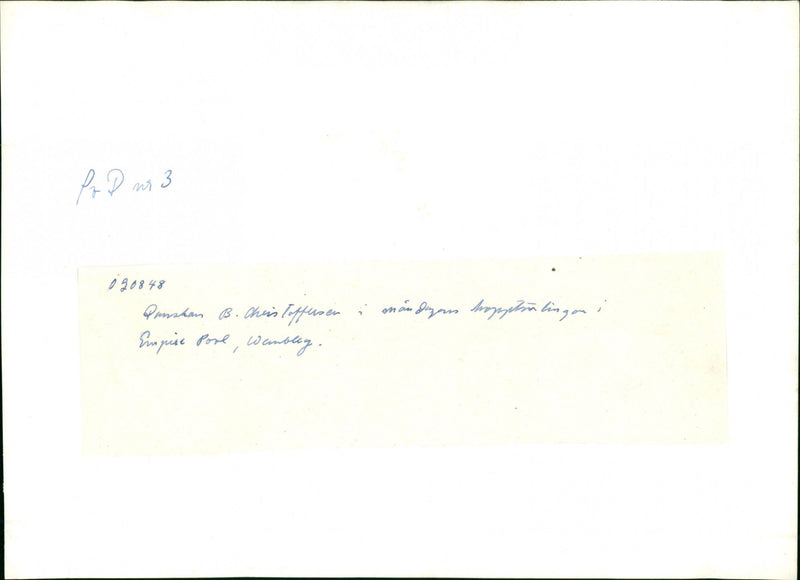 Pr D nr 3
020848
Danskan B. Christoffersen i måndagens hopptävlingar i
Empire Pool, Wembley.